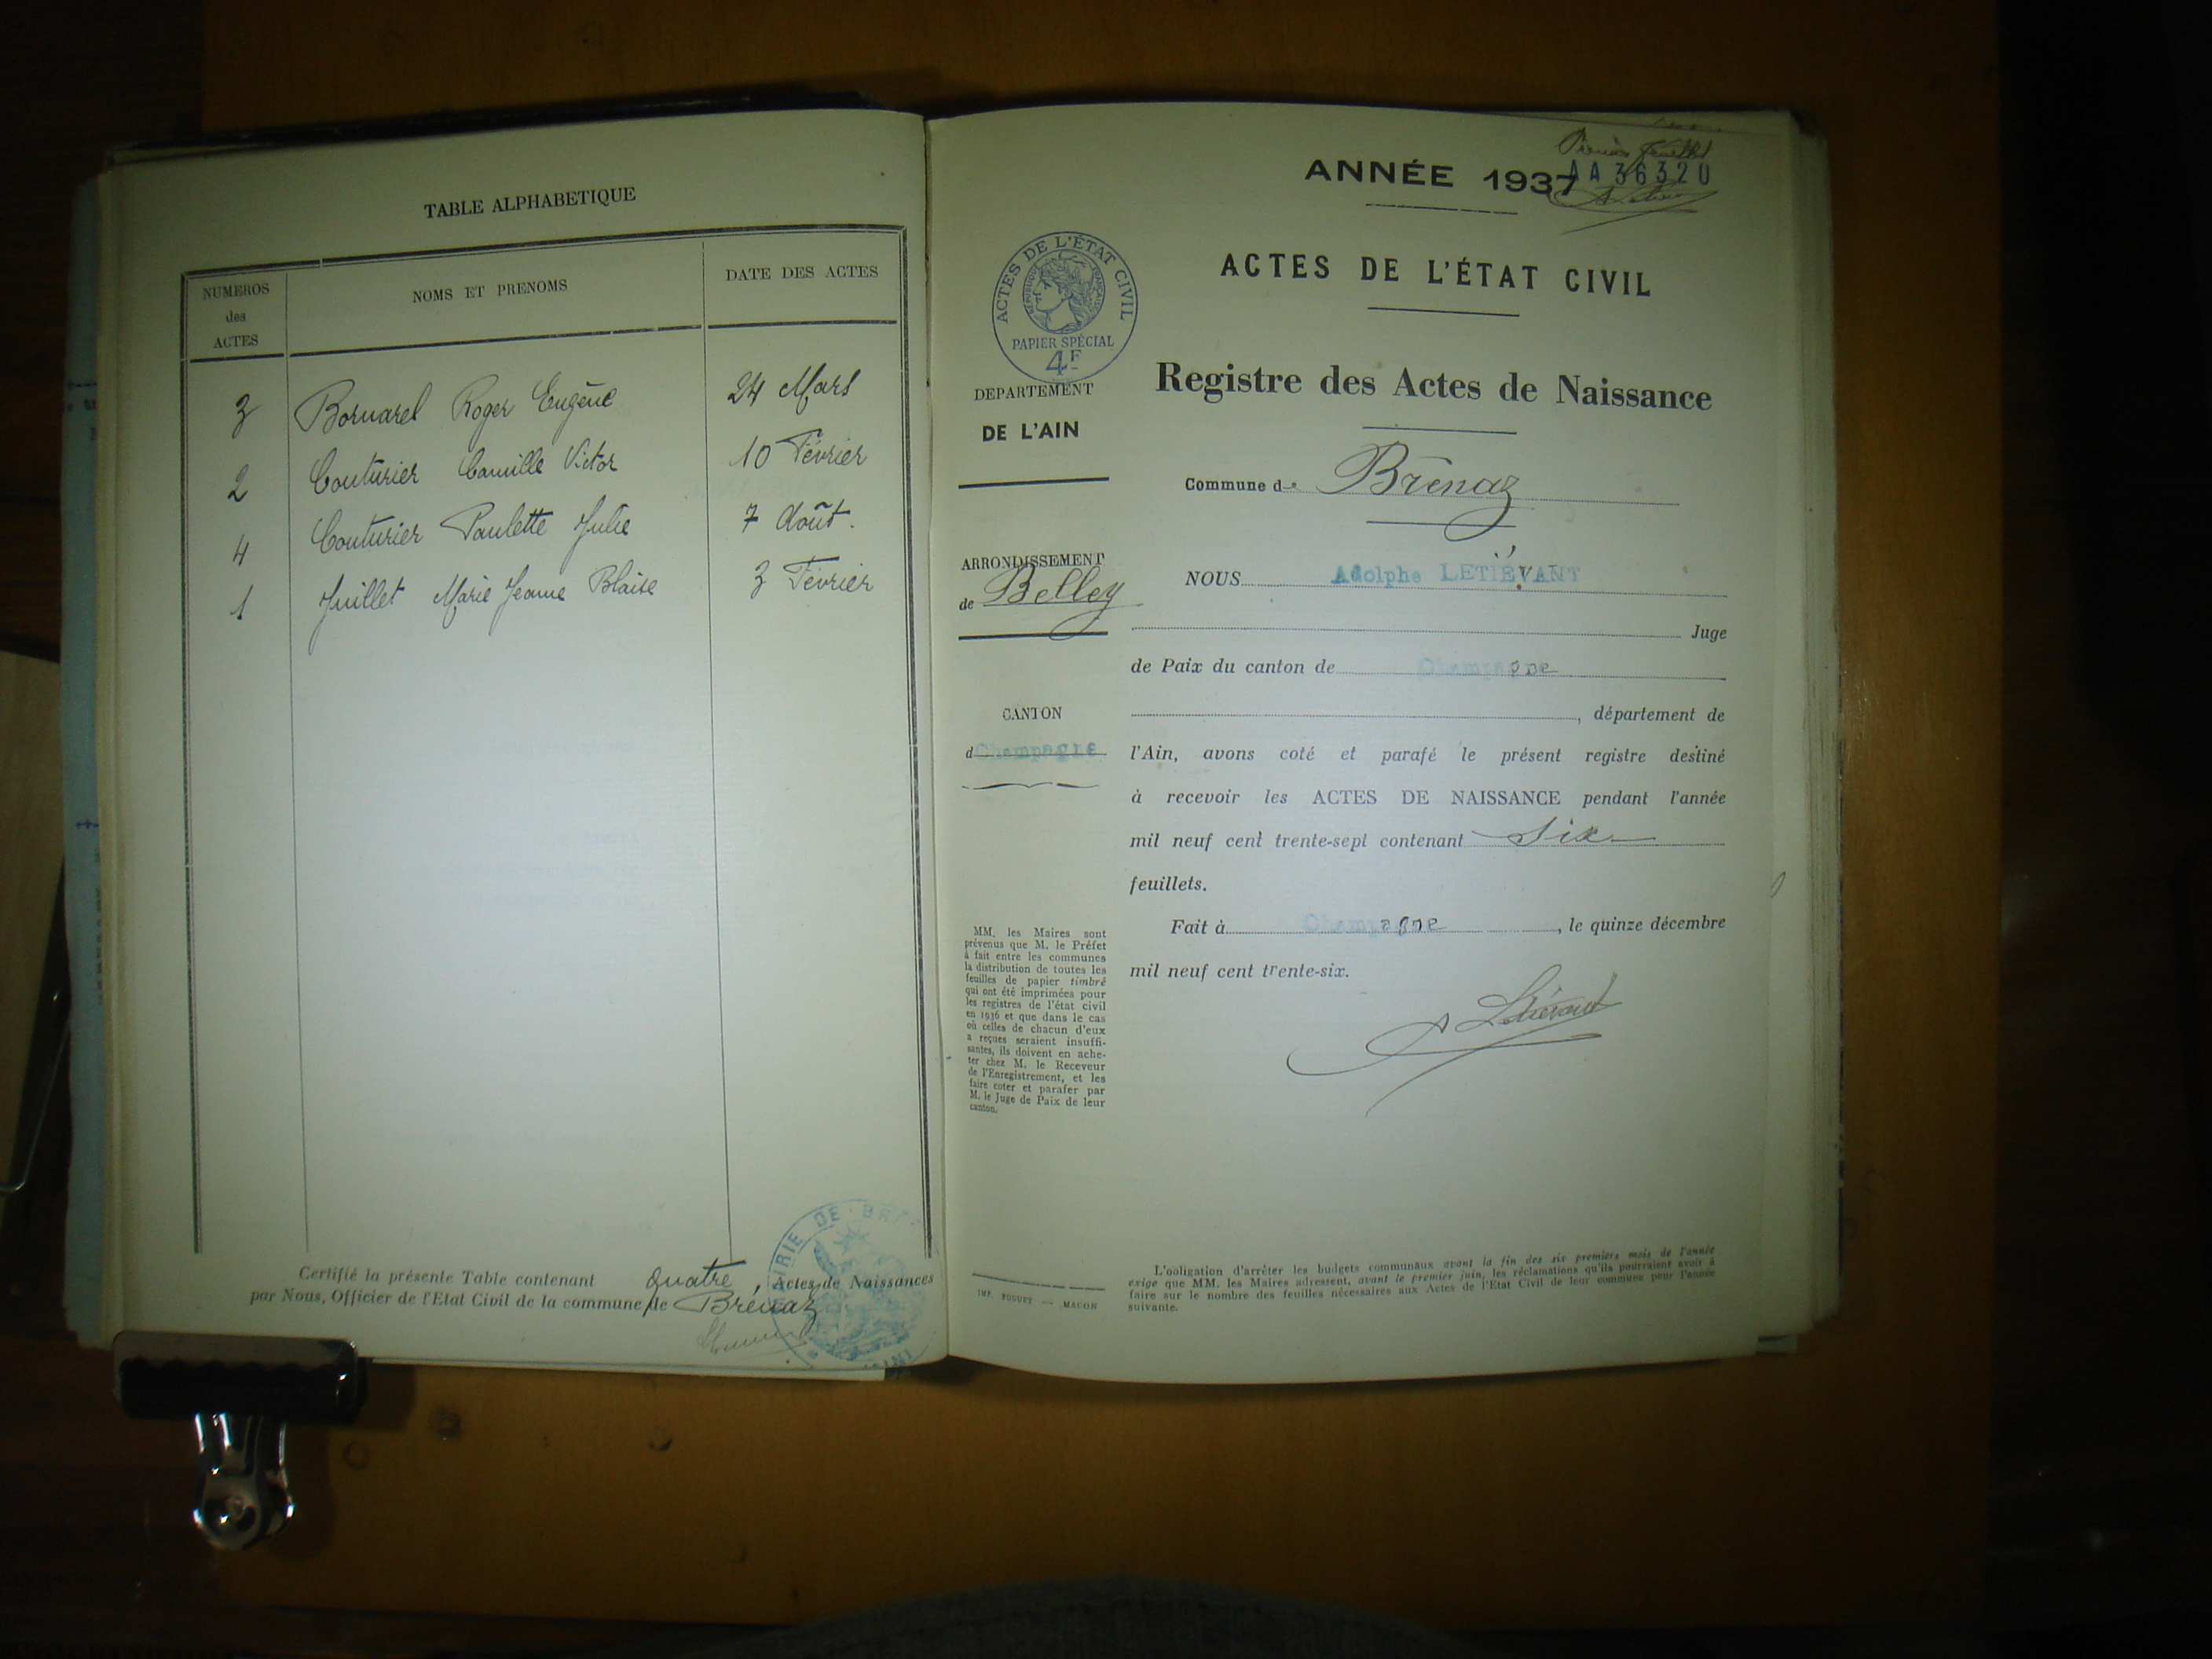 TABLE ALPHABETIQUE
NUMEROS
des
ACTES
NOMS ET PRENOMS
DATE DES ACTES
3 Bornarel Roger Eugène 24 Mars
2 Couturier Camille Victor 10 Février
4 Couturier Paulette Julie 7 Août.
1 Juillet Marie Jeanne Blaise 3 Février
Certifié la présente Table contenant quatre, Actes de Naissances
par Nous, Officier de l'Etat Civil de la commune de Brénaz
MAIRIE DE
ANNÉE 1937
AA 36320
ACTES DE L'ÉTAT CIVIL
RÉPUBLIQUE FRANÇAISE
PAPIER SPÉCIAL
4F
ACTES DE L'ÉTAT CIVIL
Registre des Actes de Naissance
DEPARTEMENT
DE L'AIN
Commune de Brénaz
ARRONDISSEMENT
de Belley
NOUS Adolphe LETIÉVANT
Juge
de Paix du canton de Champagne
CANTON
d Champagne
, département de
l'Ain, avons coté et parafé le présent registre destiné
à recevoir les ACTES DE NAISSANCE pendant l'année
mil neuf cent trente-sept contenant Six
feuillets.
Fait à Champagne, le quinze décembre
mil neuf cent trente-six.
A Letiévant
MM. les Maires sont
prévenus que M. le Préfet
à fait entre les communes
la distribution de toutes les
feuilles de papier timbré
qui ont été imprimées pour
les registres de l'état civil
en 1936 et que dans le cas
où celles de chacun d'eux
a reçues seraient insuffi-
santes, ils doivent en ache-
ter chez M. le Receveur
de l'Enregistrement, et les
faire coter et parafer par
M. le Juge de Paix de leur
canton.
IMP. BUGUET — MACON
L'obligation d'arrêter les budgets communaux avant la fin des six premiers mois de l'année
exige que MM. les Maires adressent, avant le premier juin, les réclamations qu'ils pourraient avoir à
faire sur le nombre des feuilles nécessaires aux Actes de l'Etat Civil de leur commune pour l'année
suivante.